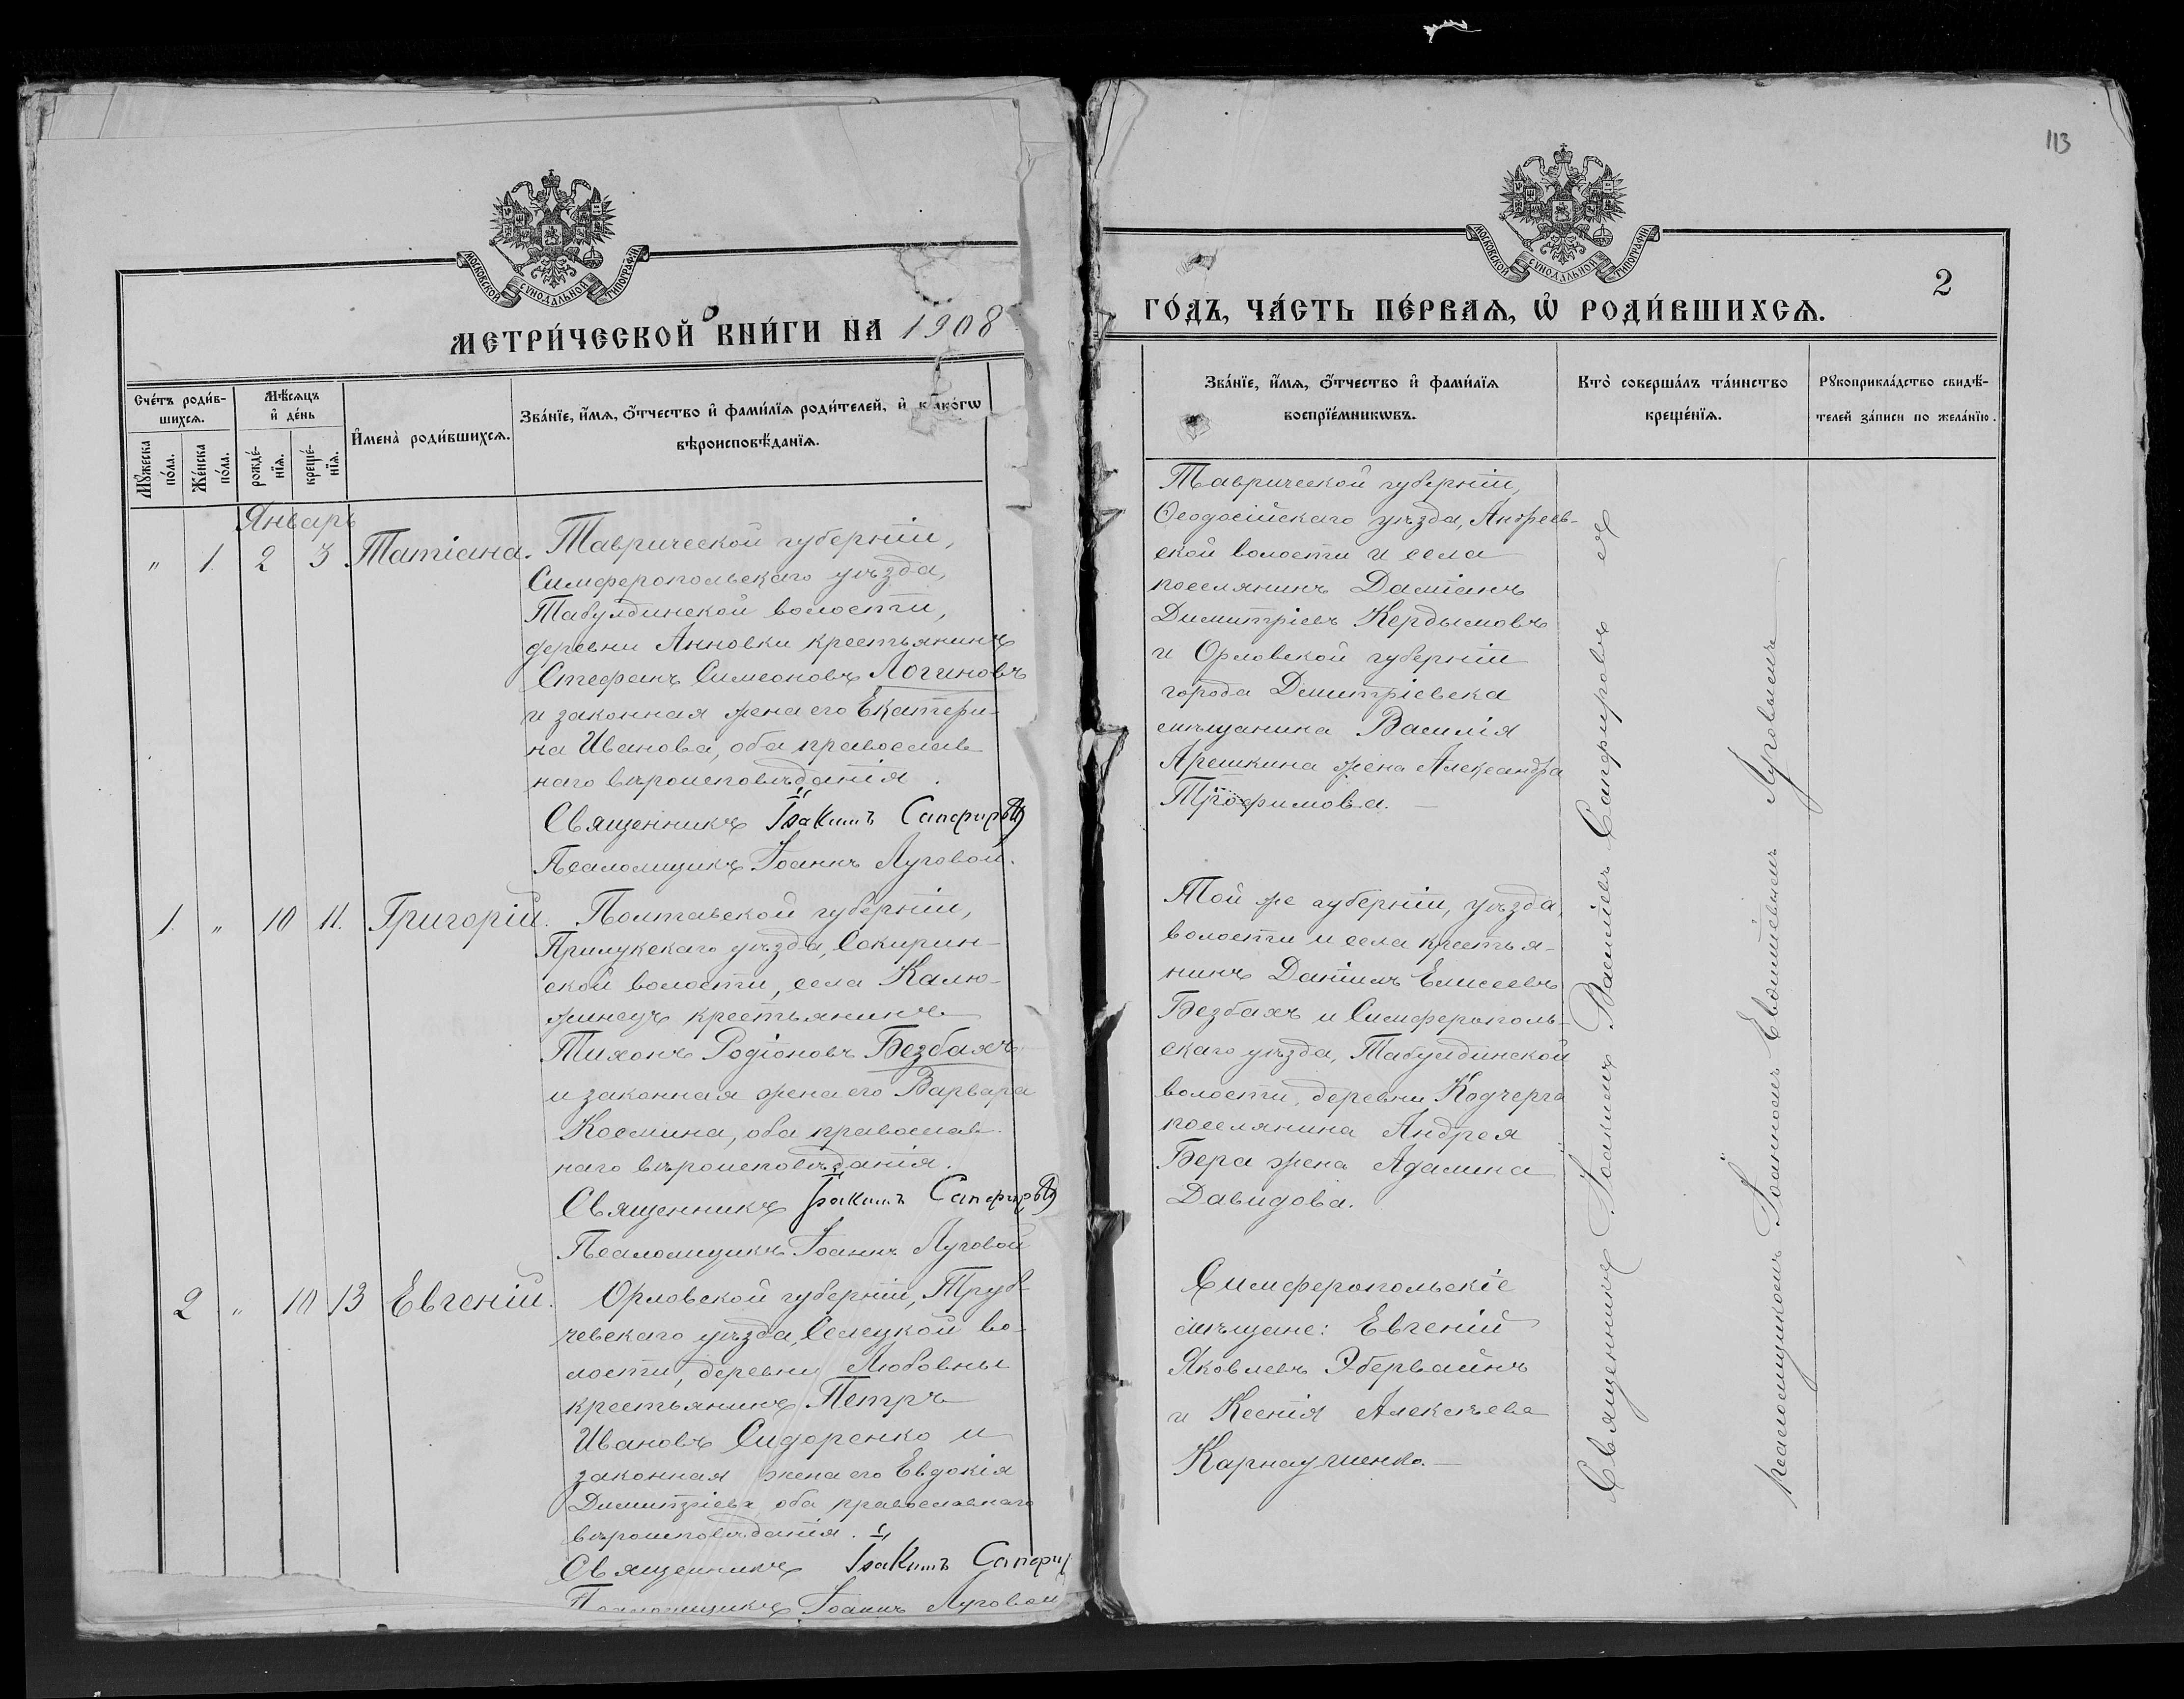 113
МОСКОВСКОЙ СѴНОДАЛЬНОЙ ТИПОГРАФІИ
МЕТРИ́ЧЕСКОЙ КНИ́ГИ НА 1908
Сче́тъ роди́в-
шихсѧ.
Мꙋ́жеска
по́ла.
Же́нска
по́ла.
Мѣ́сѧцъ
и҆ де́нь
рожде́-
нїѧ.
креще́-
нїѧ.
И҆мена̀ роди́вшихсѧ.
Зва́нїе, и҆́мѧ, ѻ҆́тчество и҆ фами́лїѧ роди́телей, и҆ како́гѡ
вѣроисповѣ́данїѧ.
Январь
" 1. 2 3 Татіана.
Таврической губерніи,
Симферопольскаго уѣзда,
Табулдинской волости,
деревни Анновки крестьянинъ
Стефанъ Симеоновъ Логиновъ
и законная жена его Екатери-
на Иванова, оба православ-
наго вѣроисповѣданія.
Священникъ Іоакимъ Сапфировъ
Псаломщикъ Іоаннъ Луговой.
1. " 10 11. Григорій.
Полтавской губерніи,
Прилукскаго уѣзда, Сокирин-
ской волости, села Калю-
жинецъ крестьянинъ
Тихонъ Родіоновъ Безбахъ
и законная жена его Варвара
Космина, оба православ-
наго вѣроисповѣданія.
Священникъ Іоакимъ Сапфировъ
Псаломщикъ Іоаннъ Луговой
2 " 10 13 Евгеній.
Орловской губерніи, Труб-
чевскаго уѣзда, Селецкой во-
лости, деревни Любовны
крестьянинъ Петръ
Ивановъ Сидоренко и
законная жена его Евдокія
Димитріева оба православнаго
вѣроисповѣданія.
Священникъ Іоакимъ Сапфи
Псаломщикъ Іоаннъ Луговой
МОСКОВСКОЙ СѴНОДАЛЬНОЙ ТИПОГРАФІИ
2
ГО́ДЪ, ЧА́СТЬ ПЕ́РВАѦ, Ѡ҆ РОДИ́ВШИХСѦ.
Зва́нїе, и҆́мѧ, ѻ҆́тчество и҆ фами́лїѧ
воспрїе́мникѡвъ.
Кто̀ соверша́лъ та́инство
креще́нїѧ.
Рꙋкоприкла́дство свидѣ́-
телей за́писи по жела́нїю.
Таврической губерніи,
Ѳеодосійскаго уѣзда, Андреев-
ской волости и села
поселянинъ Даміанъ
Димитріевъ Кердымовъ
и Орловской губерніи
города Дмитріевска
мѣщанина Василія
Арешкина жена Александра
Трофимова.
Той же губерніи, уѣзда,
волости и села крестья-
нинъ Даніилъ Елисеевъ
Безбахъ и Симферополь-
скаго уѣзда, Табулдинской
волости, деревни Кадчерга
поселянина Андрея
Бера жена Адалина
Давидова.
Симферопольскіе
мѣщане: Евгеній
Яковлевъ Эбервайнъ
и Ксенія Алексѣева
Карнаушенко.
Священникъ Іоакимъ Васильевъ Сапфировъ съ
псаломщикомъ Іоанномъ Луговымъ